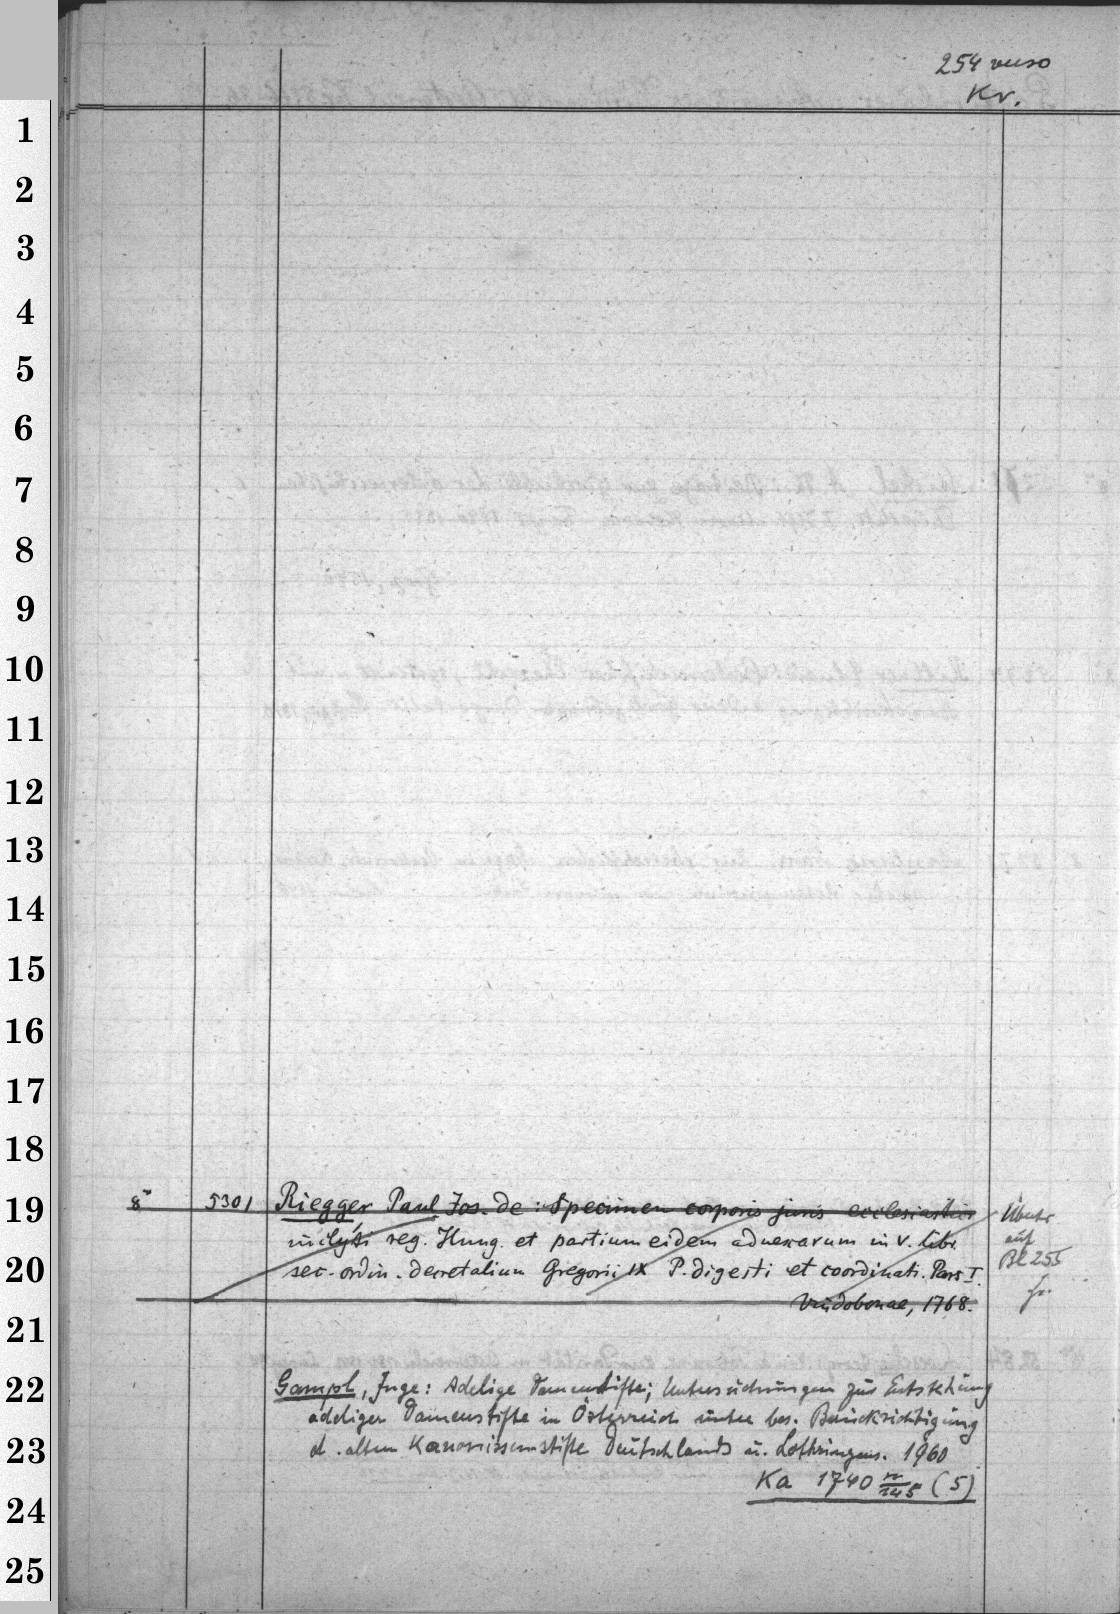 254 verso
Kr.
1
2
3
4
5
6
7
8
9
10
11
12
13
14
15
16
17
18
19
20
21
22
23
24
25
8° 5301 Riegger, Paul Jos. de: Specimen corporis juris ecclesiastici
inclyti reg. Hung. et partium eidem adnexarum in V. libr.
sec. ordin. decretalium Gregorii IX P. digesti et coordinati. Pars I.
Vindobonae, 1768.
Übertr.
auf
Bl 255
Gampl, Inge: Adelige Damenstifte; Untersuchungen zur Entstehung
adeliger Damenstifte in Österreich unter bes. Berücksichtigung
d. alten Kanonissenstifte Deutschlands u. Lothringens. 1960
Ka 1740 n/145 (5)